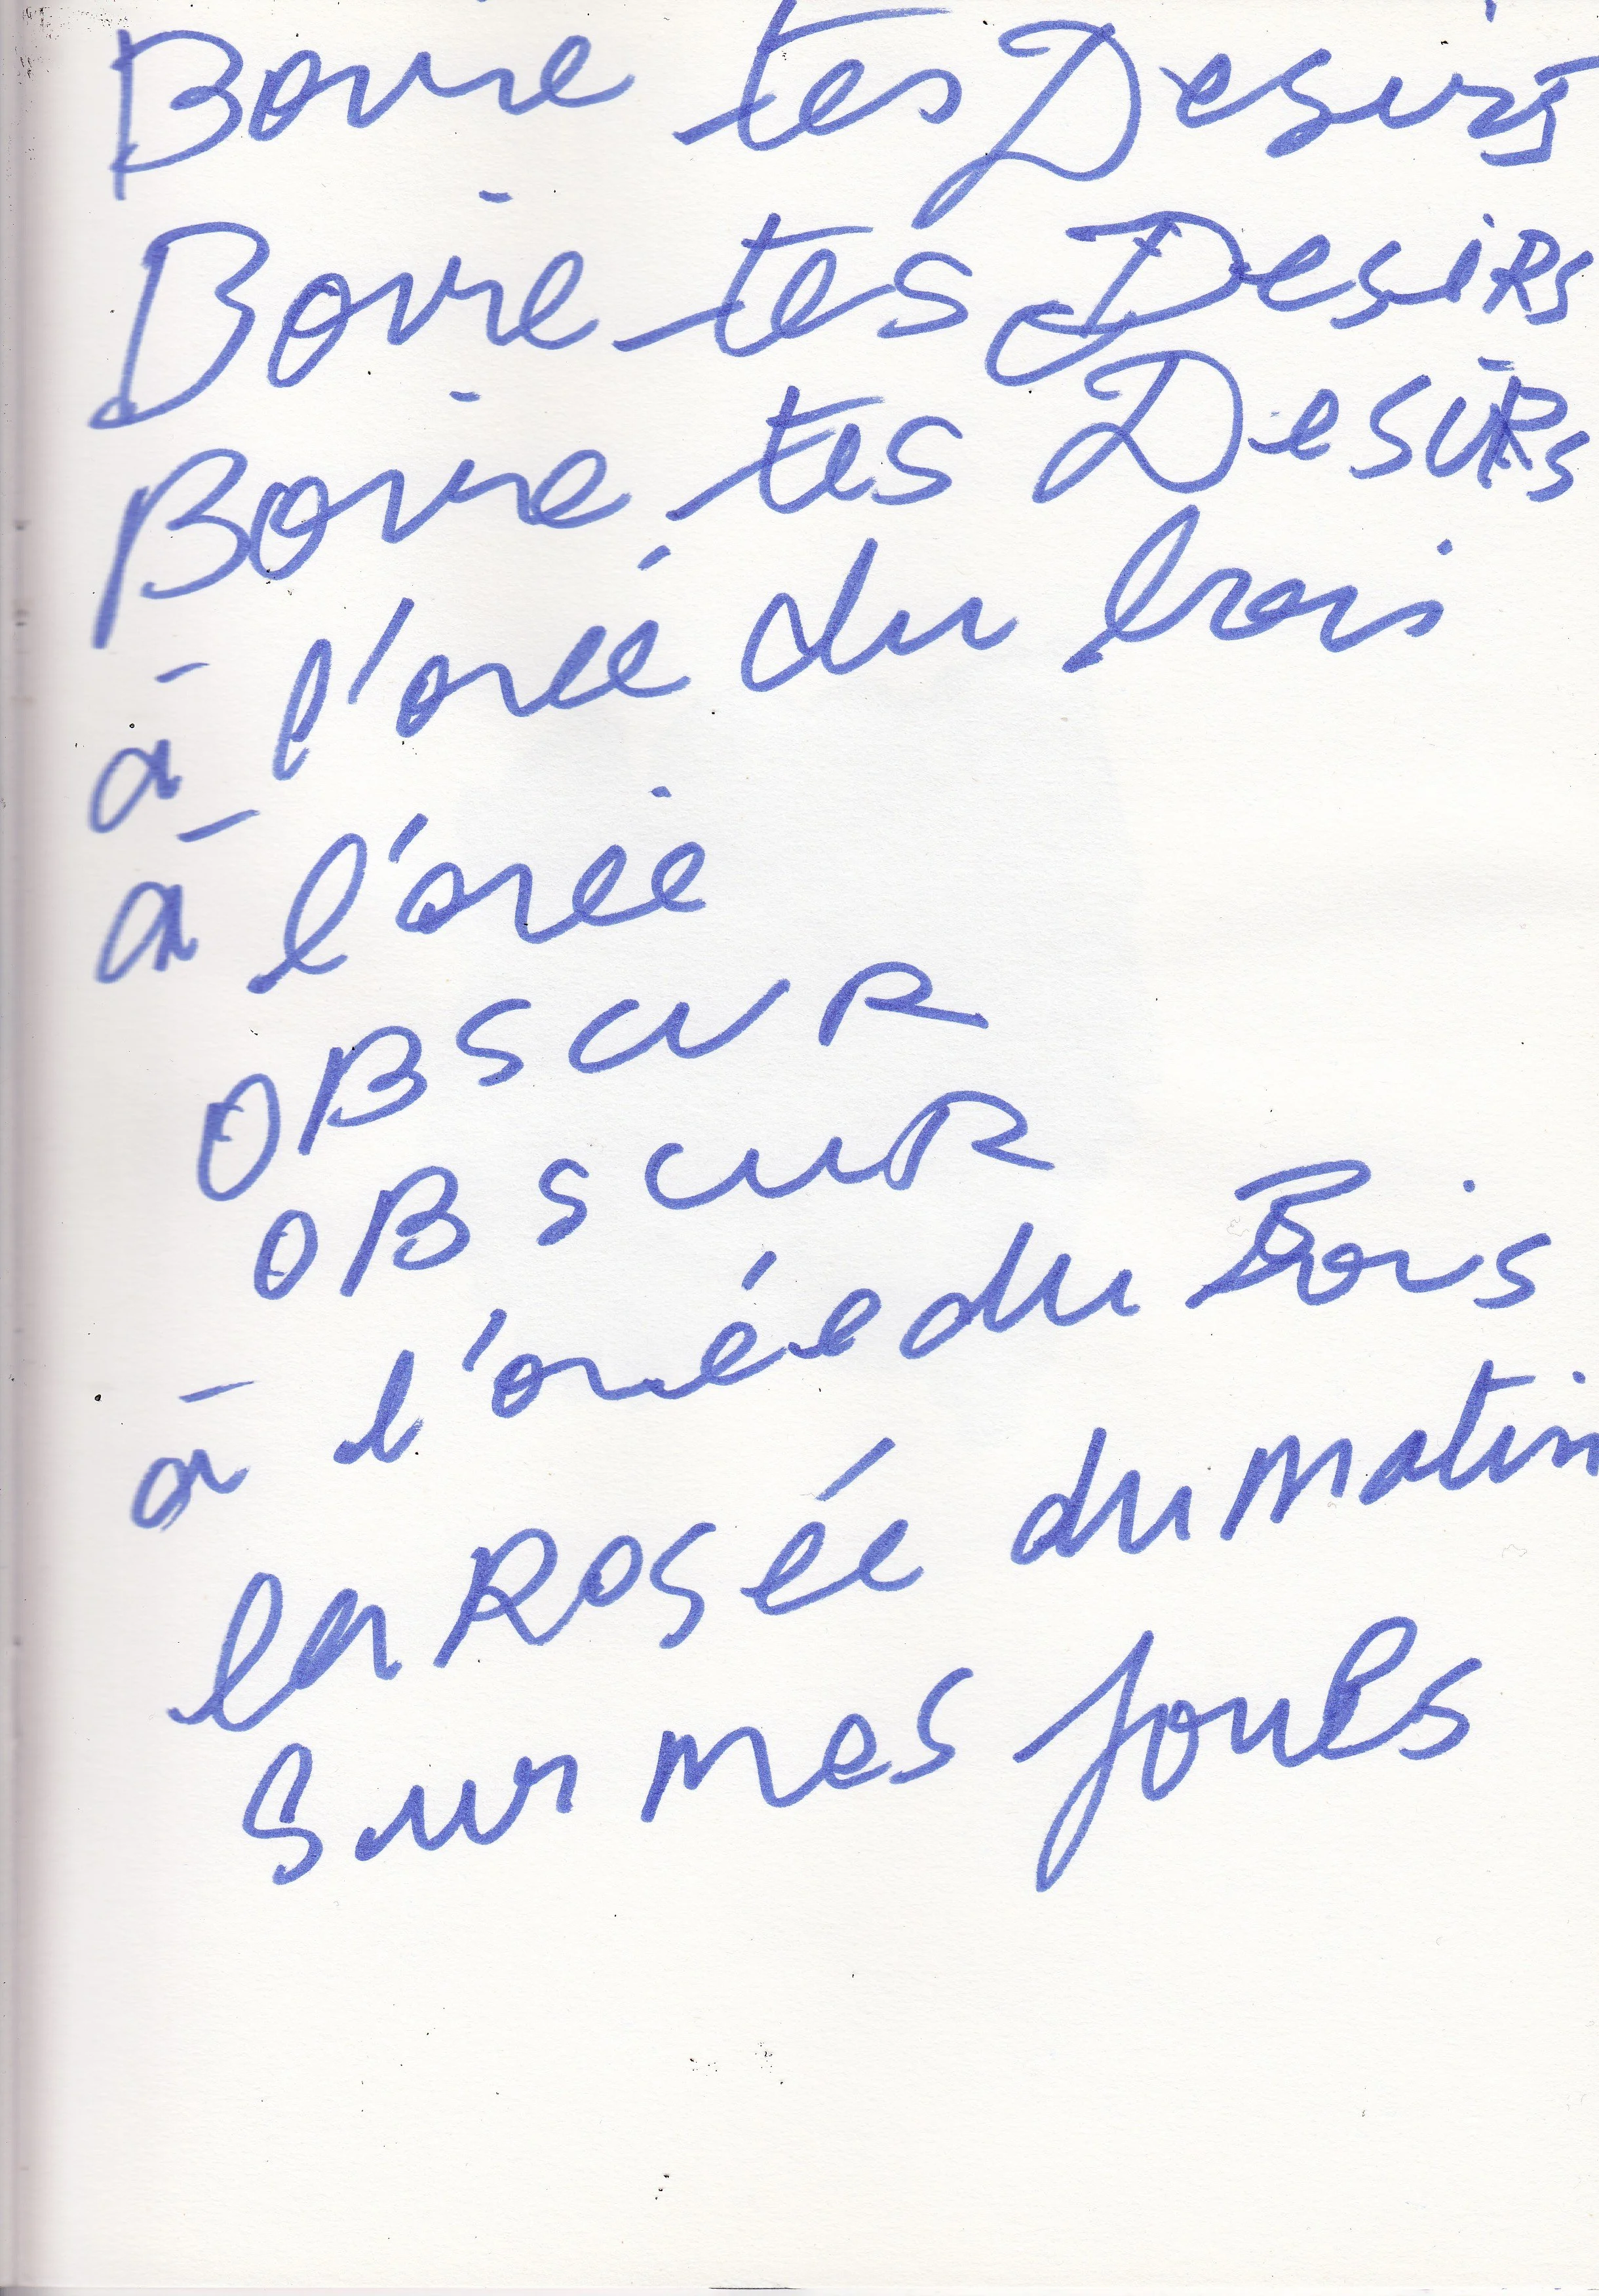 Boire tes Desirs
Boire tes DesiRs
Boire tes DesiRs
à l'orée du bois
à l'orée
OBSCUR
OBSCUR
à l'orée du Bois
la Rosée du matin
sur mes joues